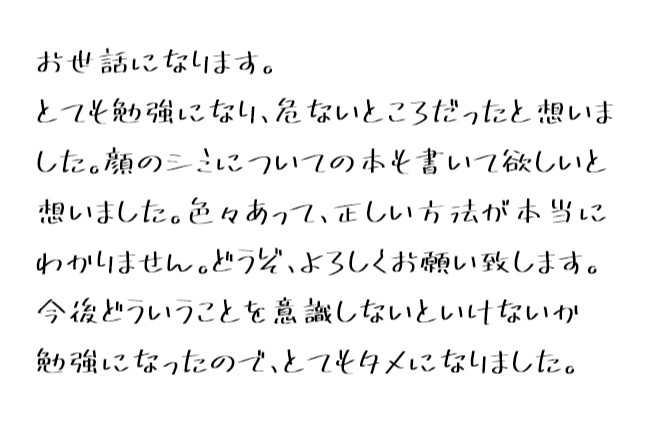 お世話になります。
とても勉強になり、危ないところだったと想いま
した。顔のシミについての本も書いて欲しいと
想いました。色々あって、正しい方法が本当に
わかりません。どうぞ、よろしくお願い致します。
今後どういうことを意識しないといけないか
勉強になったので、とてもタメになりました。